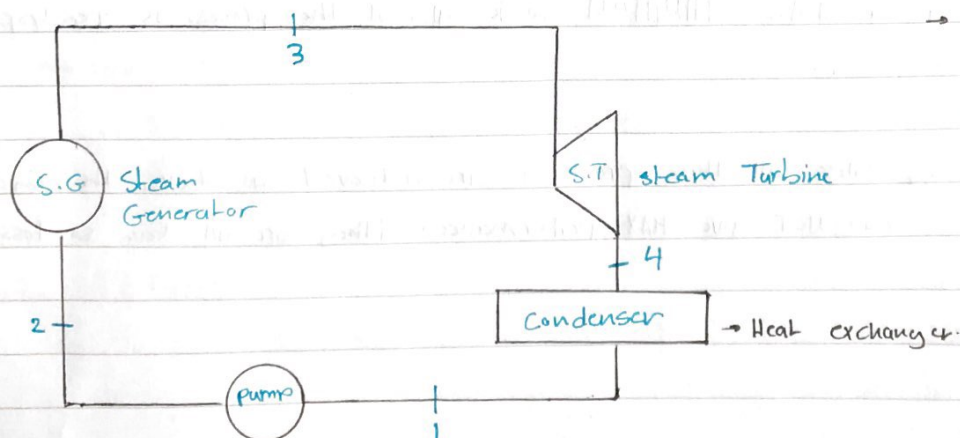 3
S.G
Steam
Generator
S.T
steam Turbine
4
Condenser
→ Heat exchanger.
2
pump
1